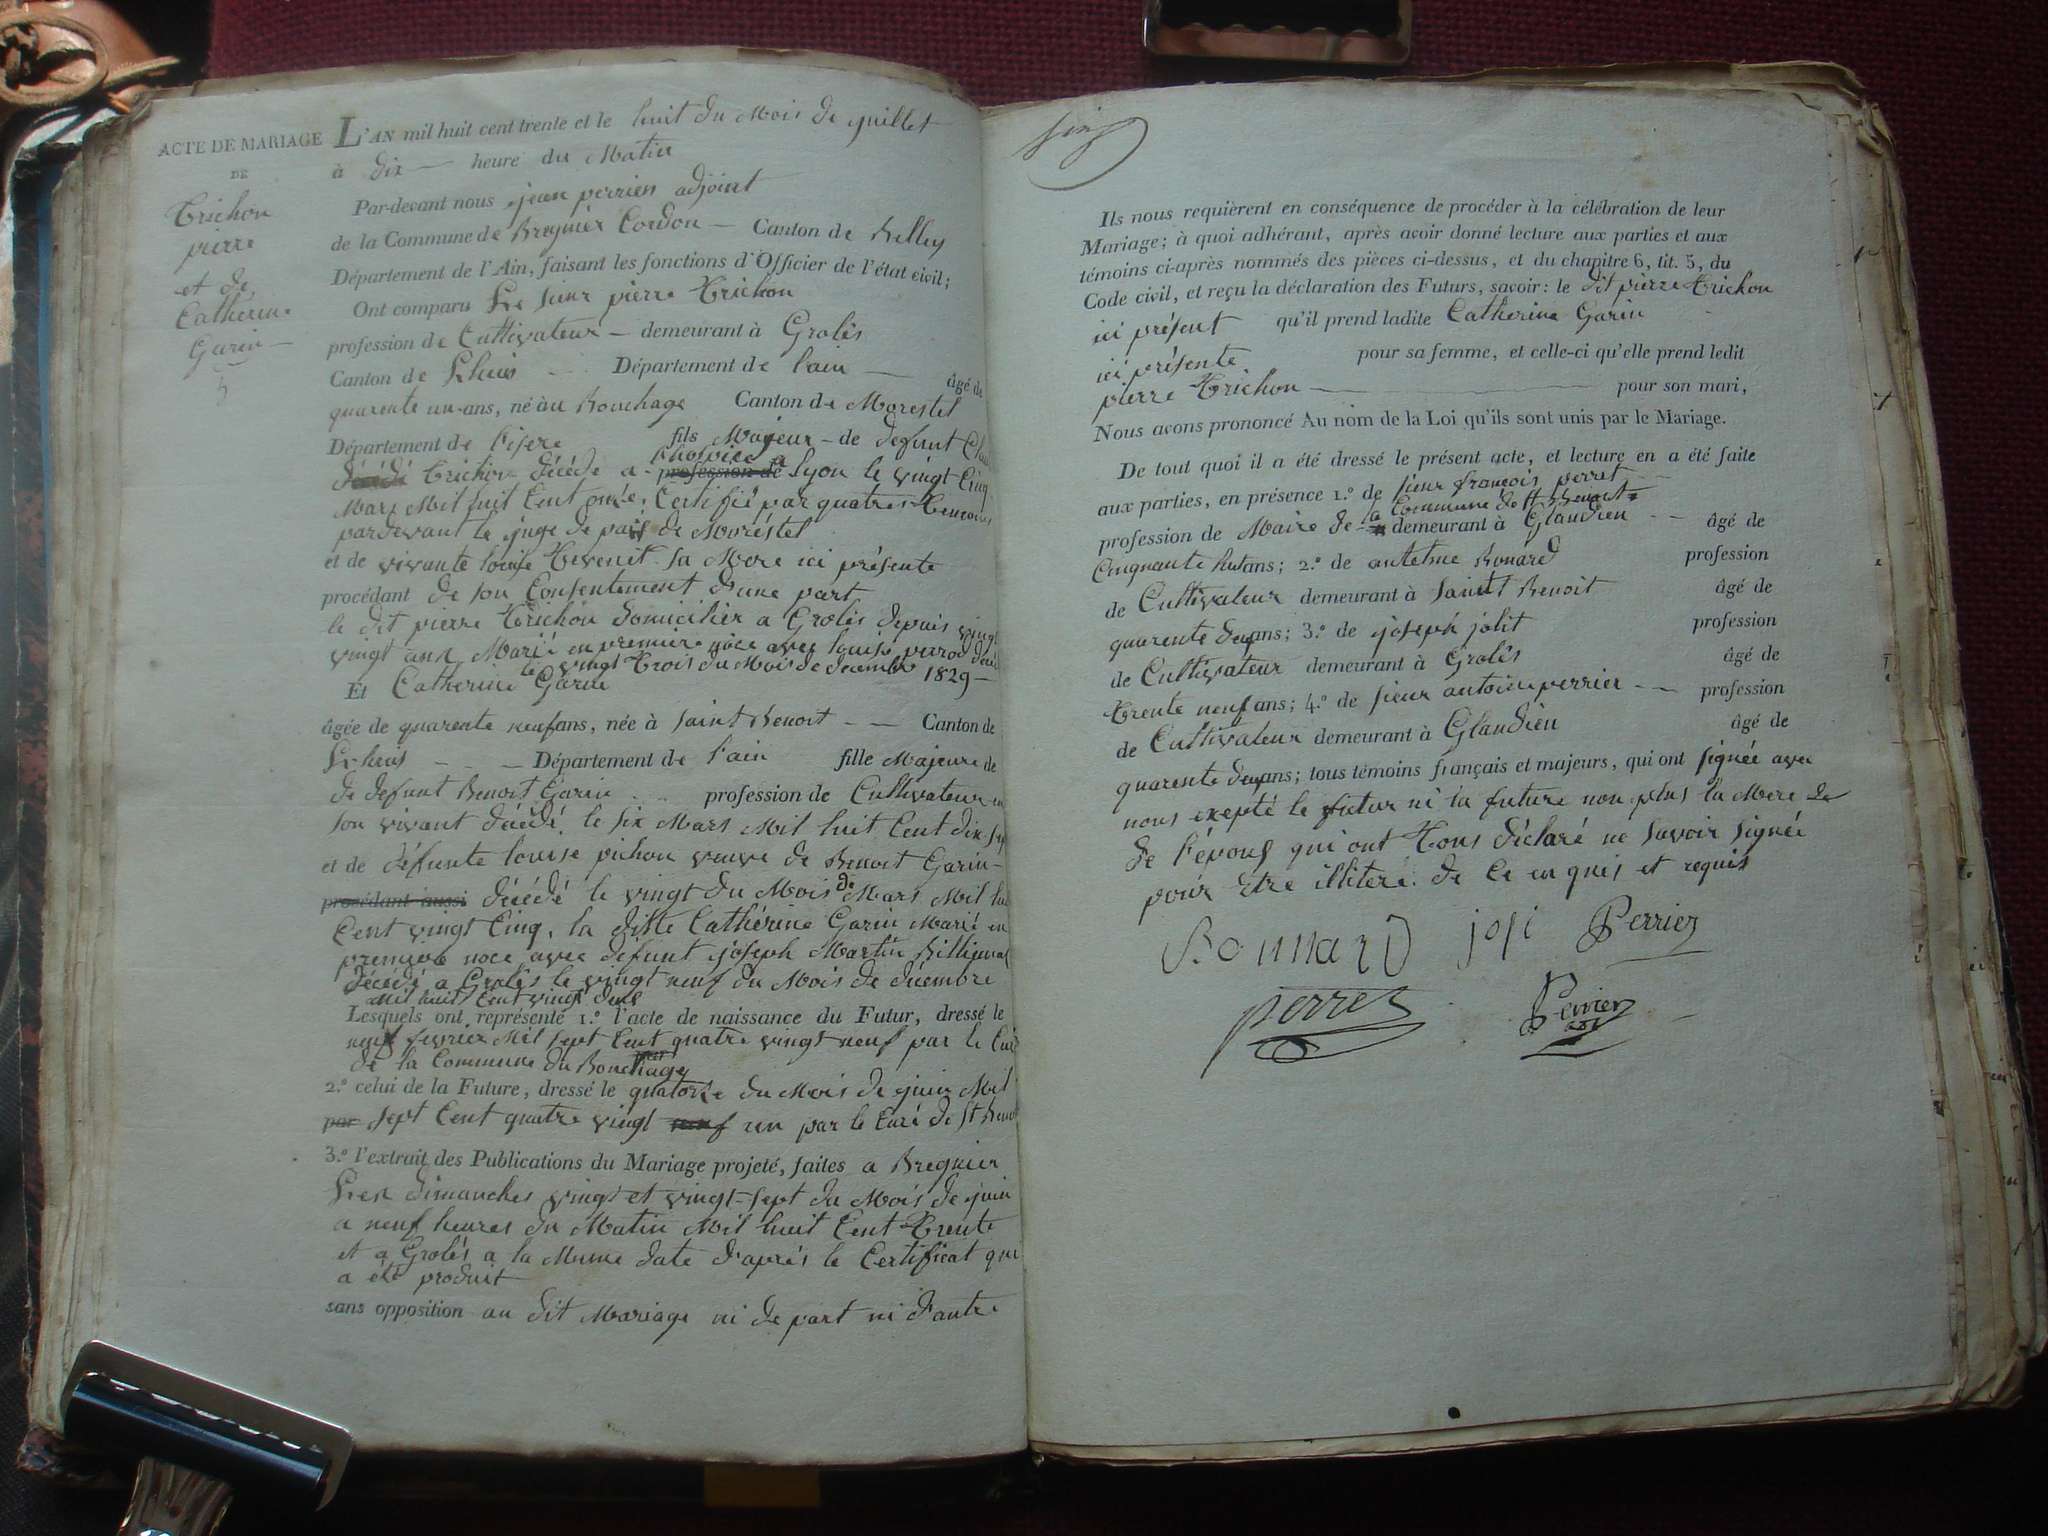 ACTE DE MARIAGE
DE
Trichon
pierre
et de
Catherine
Garin
L'AN mil huit cent trente et le huit du Mois de juillet
à dix — heure du Matin
Par-devant nous jean perrier adjoint
de la Commune de Bregnier Cordon — Canton de Belley
Département de l'Ain, faisant les fonctions d'Officier de l'état civil;
Ont comparu Le sieur pierre Trichon
profession de Cultivateur — demeurant à Grolés
Canton de Lhuis — Département de l'ain — âgé de
quarente un ans, né au Bouchage Canton de Morestel
Département de l'isere fils Majeur — de defunt
Trichon décédé a profession de lyon le vingt Cinq
Mars Mil huit Cent onze, Certifié par quatres temoins
pardevant le juge de paix de Moréstel
et de vivante louise Tevenit sa Mere ici présente
procédant de son Consentement d'une part
le dit pierre Trichon domicilier a Grolés depuis vingt
vingt ans Marié en premiere noce avec louise perrod
le vingt Trois du Mois de decembre 1829 —
Et Catherine Garin
âgée de quarente neuf ans, née à saint Benoit — — Canton de
Lhuis — — — Département de l'ain fille Majeure de
de defunt Benoit Garin profession de Cultivateur en
son vivant décédé le six Mars Mil huit Cent dix sept
et de défunte louise pichon veuve de Benoit Garin —
procédant aussi décédé le vingt du Mois de Mars Mil huit
Cent vingt Cinq, la ditte Cathérine Garin Marié en
premiere noce avec défunt joseph Martin
décédé a Grolés le vingt neuf du Mois de décembre
Mil huit Cent vingt deux
Lesquels ont représenté 1.° l'acte de naissance du Futur, dressé le
neuf fevrier Mil sept Cent quatre vingt neuf par le Curé
de la Commune du Bouchage
2.° celui de la Future, dressé le quatorze du Mois de juin Mil
par sept Cent quatre vingt neuf un par le Curé de St Benoit
3.° l'extrait des Publications du Mariage projeté, faites a Bregnier
Les dimanches vingt et vingt-sept du Mois de juin
a neuf heures du Matin Mil huit Cent Trente
et a Grolés a la Meme date d'aprés le Certificat qui
a été produit
sans opposition au dit Mariage ni de part ni d'autre
Ils nous requièrent en conséquence de procéder à la célébration de leur
Mariage; à quoi adhérant, après avoir donné lecture aux parties et aux
témoins ci-après nommés des pièces ci-dessus, et du chapitre 6, tit. 5, du
Code civil, et reçu la déclaration des Futurs, savoir: le dit pierre Trichon
ici présent qu'il prend ladite Catherine Garin
ici présente pour sa femme, et celle-ci qu'elle prend ledit
pierre Trichon — pour son mari,
Nous avons prononcé Au nom de la Loi qu'ils sont unis par le Mariage.
De tout quoi il a été dressé le présent acte, et lecture en a été faite
aux parties, en présence 1.° de sieur françois perret
la Commune de St Benoit
profession de Maire de demeurant à Glandieu — âgé de
Cinquante huit ans; 2.° de antelme Bonard profession
de Cultivateur demeurant à saint Benoit âgé de
quarente deux ans; 3.° de joseph jolit profession
de Cultivateur demeurant à Grolés âgé de
Trente neuf ans; 4.° de sieur antoine perrier — profession
de Cultivateur demeurant à Glandieu âgé de
quarente deux ans; tous témoins français et majeurs, qui ont signée avec
nous exepté le futur ni la future non plus la Mere de
de l'épous qui ont Tous déclaré ne savoir signée
pour Etre illiteré. de Ce en quis et requis
Bonnard joli Perrier
perret Perrier